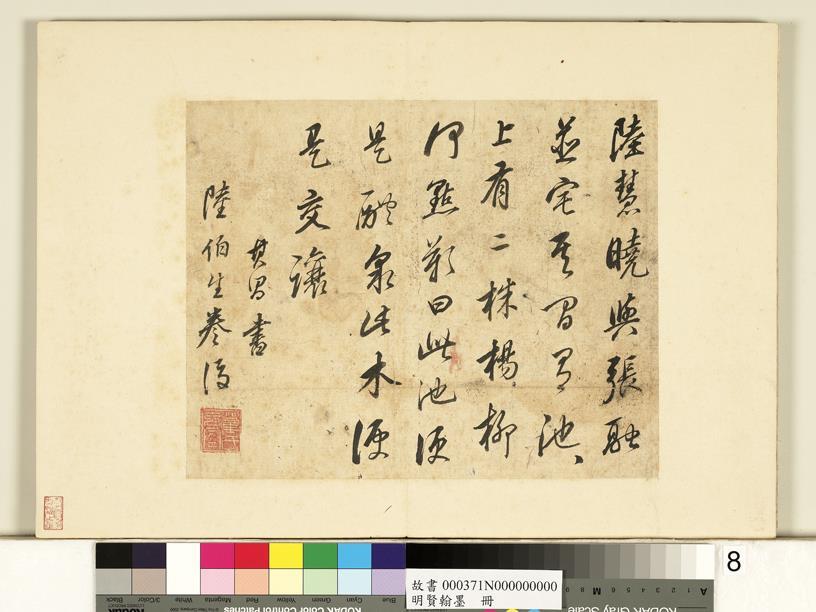 陸慧曉與張融
並宅其間有池、
上有二株楊柳
何點歎曰此池便
是醴泉此木便
是交讓
其昌書
陸伯生卷後
8
故書 000371N000000000
明賢翰墨 冊
Blue Cyan Green Yellow Red Magenta White 3/Color Black
KODAK Color Control Patches
KODAK Gray Scale
A 1 2 3 4 5 6 M 8 9